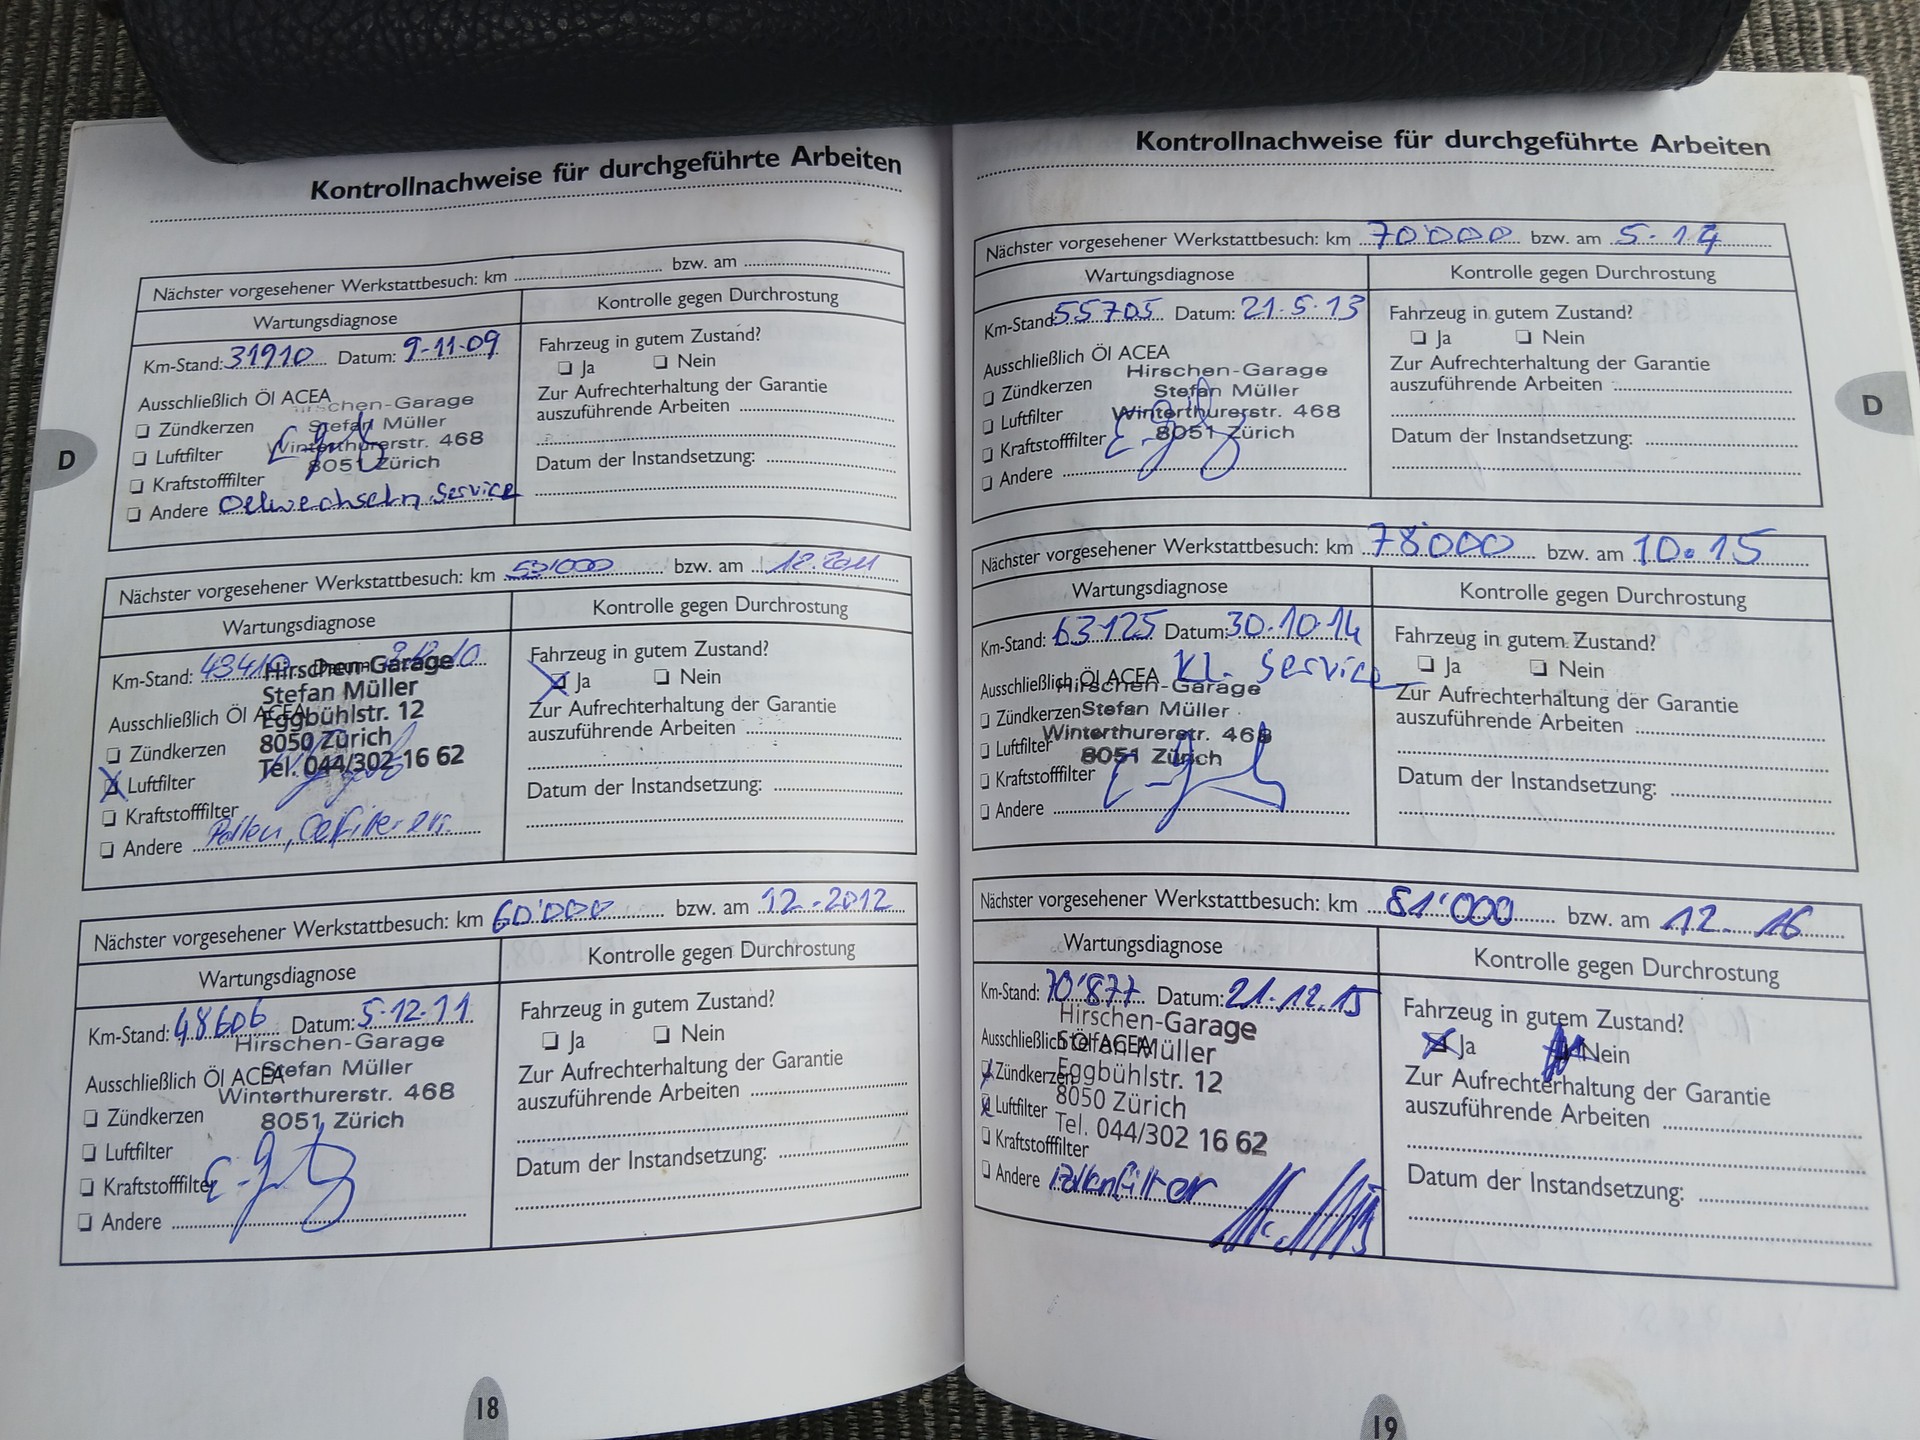 Kontrollnachweise für durchgeführte Arbeiten
Nächster vorgesehener Werkstattbesuch: km bzw. am
Wartungsdiagnose Kontrolle gegen Durchrostung
Km-Stand: 31910 Datum: 9-11-09
Ausschließlich Öl ACEA
Hirschen-Garage
Stefan Müller
Winterthurerstr. 468
8051 Zürich
Zündkerzen
Luftfilter
Kraftstofffilter
Andere Oelwechseln Service
Fahrzeug in gutem Zustand?
Ja Nein
Zur Aufrechterhaltung der Garantie
auszuführende Arbeiten
Datum der Instandsetzung:
Nächster vorgesehener Werkstattbesuch: km bzw. am 12.2011
Wartungsdiagnose Kontrolle gegen Durchrostung
Km-Stand: 43410 Datum:
Hirschen-Garage
Stefan Müller
Eggbühlstr. 12
8050 Zürich
Tel. 044/302 16 62
Ausschließlich Öl ACEA
Zündkerzen
Luftfilter
Kraftstofffilter
Andere Pollen,
Fahrzeug in gutem Zustand?
Ja Nein
Zur Aufrechterhaltung der Garantie
auszuführende Arbeiten
Datum der Instandsetzung:
Nächster vorgesehener Werkstattbesuch: km 60'000 bzw. am 12.-2012
Wartungsdiagnose Kontrolle gegen Durchrostung
Km-Stand: 48606 Datum: 5-12-11
Hirschen-Garage
Stefan Müller
Winterthurerstr. 468
8051 Zürich
Ausschließlich Öl ACEA
Zündkerzen
Luftfilter
Kraftstofffilter
Andere
Fahrzeug in gutem Zustand?
Ja Nein
Zur Aufrechterhaltung der Garantie
auszuführende Arbeiten
Datum der Instandsetzung:
D
18
Kontrollnachweise für durchgeführte Arbeiten
Nächster vorgesehener Werkstattbesuch: km 70'000 bzw. am 5.14
Wartungsdiagnose Kontrolle gegen Durchrostung
Km-Stand: 55705 Datum: 21.5.13
Ausschließlich Öl ACEA
Hirschen-Garage
Stefan Müller
Winterthurerstr. 468
8051 Zürich
Zündkerzen
Luftfilter
Kraftstofffilter
Andere
Fahrzeug in gutem Zustand?
Ja Nein
Zur Aufrechterhaltung der Garantie
auszuführende Arbeiten
Datum der Instandsetzung:
Nächster vorgesehener Werkstattbesuch: km 78'000 bzw. am 10.15
Wartungsdiagnose Kontrolle gegen Durchrostung
Km-Stand: 63125 Datum: 30.10.14
Ausschließlich Öl ACEA Kl. Service
Hirschen-Garage
Stefan Müller
Winterthurerstr. 468
8051 Zürich
Zündkerzen
Luftfilter
Kraftstofffilter
Andere
Fahrzeug in gutem Zustand?
Ja Nein
Zur Aufrechterhaltung der Garantie
auszuführende Arbeiten
Datum der Instandsetzung:
Nächster vorgesehener Werkstattbesuch: km 81'000 bzw. am 12. 16
Wartungsdiagnose Kontrolle gegen Durchrostung
Km-Stand: 70'877 Datum: 21.12.15
Hirschen-Garage
Stefan Müller
Eggbühlstr. 12
8050 Zürich
Tel. 044/302 16 62
Ausschließlich Öl ACEA
Zündkerzen
Luftfilter
Kraftstofffilter
Andere Pollenfilter
Fahrzeug in gutem Zustand?
Ja Nein
Zur Aufrechterhaltung der Garantie
auszuführende Arbeiten
Datum der Instandsetzung:
D
19